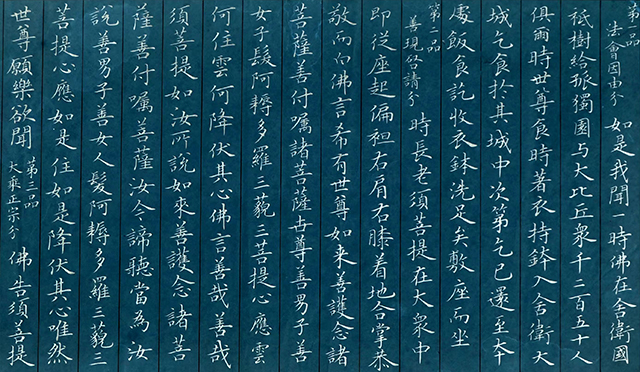 第一品 法會因由分 如是我聞一時佛在舍衛國
祇樹給孤獨園与大比丘衆千二百五十人
俱爾時世尊食時著衣持鉢入舍衛大
城乞食於其城中次第乞已還至本
處飯食訖收衣鉢洗足矣敷座而坐
第二品 善現啓請分 時長老須菩提在大衆中
即從座起偏袒右肩右膝着地合掌恭
敬而向佛言希有世尊如来善護念諸
菩薩善付嘱諸菩薩世尊善男子善
女子髮阿耨多羅三藐三菩提心應雲
何住雲何降伏其心佛言善哉善哉
須菩提如汝所説如來善護念諸菩
薩善付嘱菩薩汝今諦聽當為汝
説善男子善女人髮阿耨多羅三藐三
菩提心應如是住如是降伏其心唯然
世尊願樂欲聞 第三品 大乘正宗分 佛告須菩提